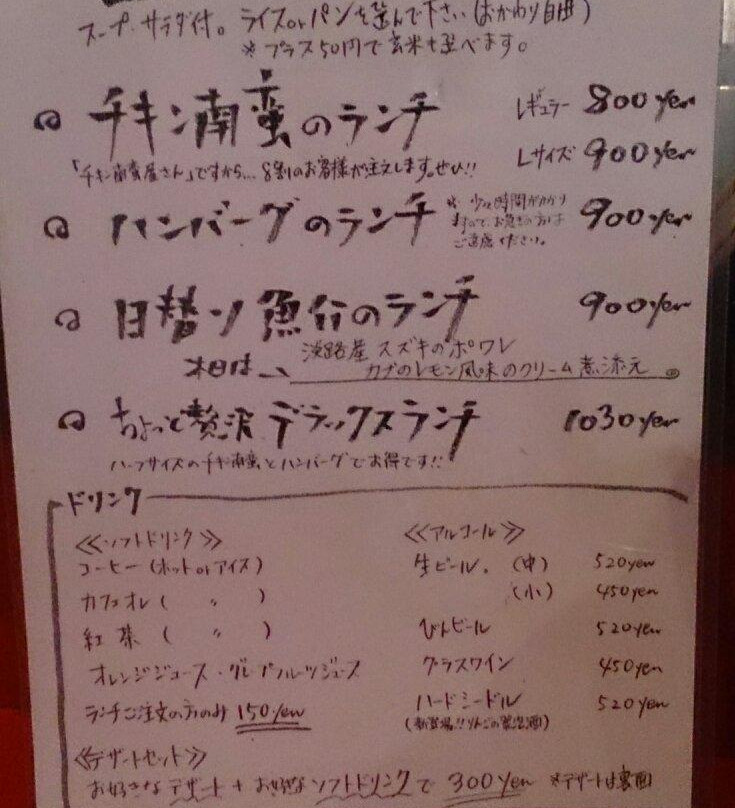 スープ・サラダ付。ライスorパンを選んで下さい(おかわり自由)
※プラス50円で玄米も選べます。
チキン南蛮のランチ レギュラー 800yen
Lサイズ 900yen
「チキン南蛮屋さん」ですから…8割のお客様が注文します。ぜひ!!
ハンバーグのランチ ※少々時間がかかりますので、お急ぎの方はご遠慮ください。 900yen
日替り魚介のランチ 900yen
本日は… 淡路産 スズキのポワレ
カブのレモン風味のクリーム煮添え
ちょっと贅沢デラックスランチ 1030yen
ハーフサイズのチキン南蛮とハンバーグでお得です!!
ドリンク
≪ソフトドリンク≫
コーヒー(ホットorアイス)
カフェオレ( 〃 )
紅茶( 〃 )
オレンジジュース・グレープフルーツジュース
ランチご注文の方のみ 150yen
≪アルコール≫
生ビール。(中) 520yen
(小) 450yen
びんビール 520yen
グラスワイン 450yen
ハードシードル 520yen
(新登場!!りんごの発泡酒)
≪デザートセット≫
お好きなデザート+お好きなソフトドリンクで 300yen ※デザートは裏面